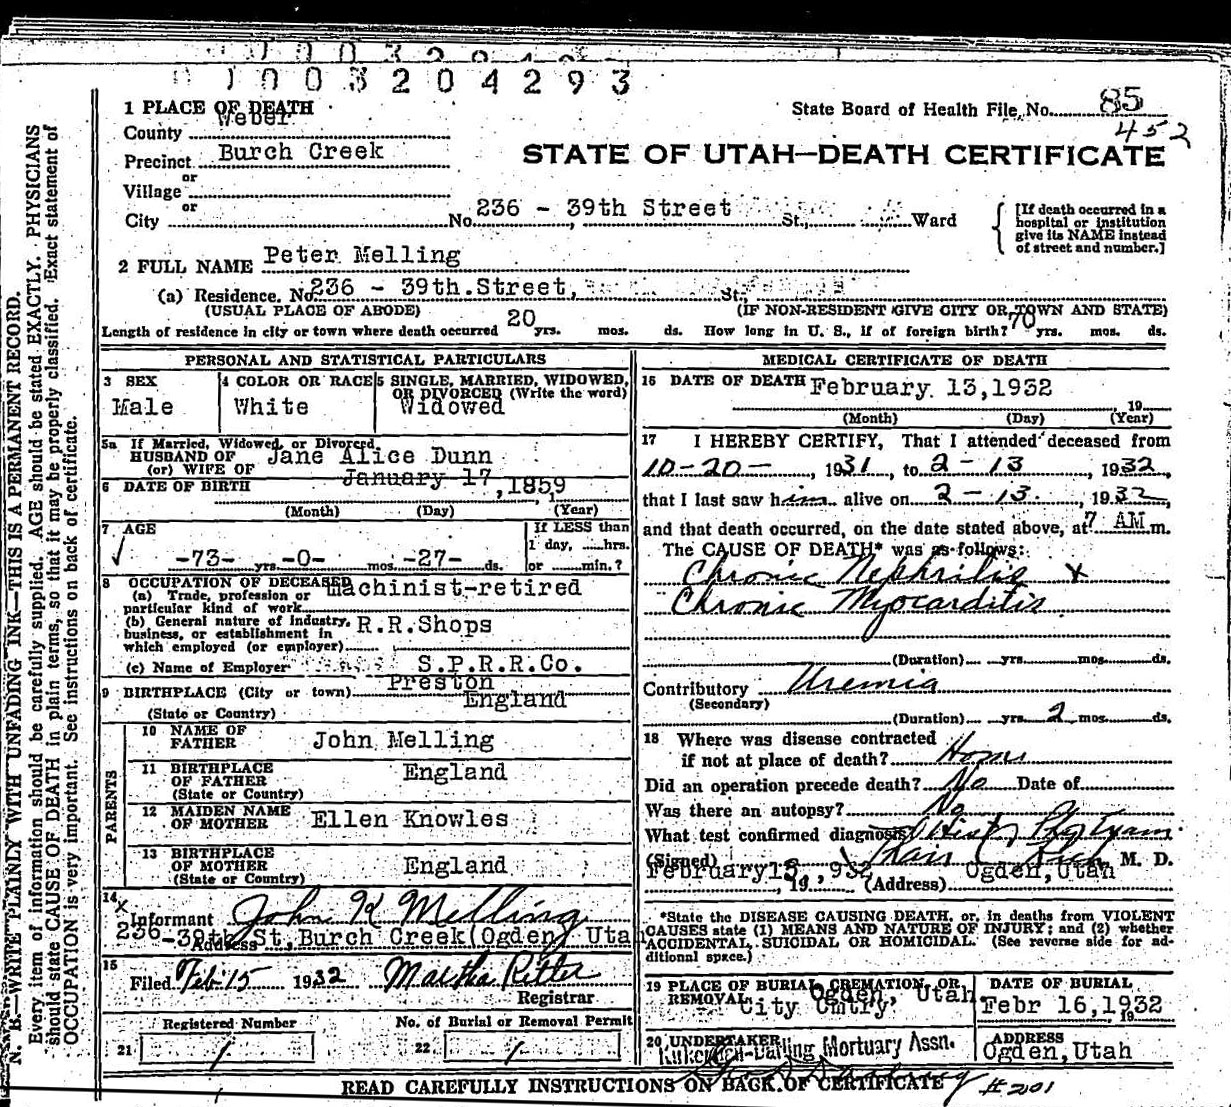 1003204293
State Board of Health File No. 85
452
1 PLACE OF DEATH
County Weber
Precinct Burch Creek
or
Village
or
City No. 236 - 39th Street St., Ward
STATE OF UTAH—DEATH CERTIFICATE
[If death occurred in a
hospital or institution
give its NAME instead
of street and number.]
2 FULL NAME Peter Melling
(a) Residence. No. 236 - 39th.Street, St.,
(USUAL PLACE OF ABODE) (IF NON-RESIDENT GIVE CITY OR TOWN AND STATE)
Length of residence in city or town where death occurred 20 yrs. mos. ds. How long in U. S., if of foreign birth? 70 yrs. mos. ds.
PERSONAL AND STATISTICAL PARTICULARS
3 SEX
Male
4 COLOR OR RACE
White
5 SINGLE, MARRIED, WIDOWED,
OR DIVORCED (Write the word)
Widowed
5a If Married, Widowed, or Divorced
HUSBAND OF Jane Alice Dunn
(or) WIFE OF
6 DATE OF BIRTH January 17, 1859
(Month) (Day) (Year)
7 AGE
-73- yrs. -0- mos. -27- ds.
If LESS than
1 day, hrs.
or min.?
8 OCCUPATION OF DECEASED
(a) Trade, profession or
particular kind of work Machinist-retired
(b) General nature of Industry,
business, or establishment in
which employed (or employer) R.R.Shops
(c) Name of Employer S.P.R.R.Co.
9 BIRTHPLACE (City or town) Preston
England
(State or Country)
PARENTS
10 NAME OF
FATHER John Melling
11 BIRTHPLACE
OF FATHER England
(State or Country)
12 MAIDEN NAME
OF MOTHER Ellen Knowles
13 BIRTHPLACE
OF MOTHER England
(State or Country)
14 x
Informant John K Melling
Address 236-39th St., Burch Creek(Ogden) Utah
15
Filed Feb 15 1932 Martha Ritter
Registrar
Registered Number
21 1
No. of Burial or Removal Permit
22 1
MEDICAL CERTIFICATE OF DEATH
16 DATE OF DEATH February 13,1932
19
(Month) (Day) (Year)
17 I HEREBY CERTIFY, That I attended deceased from
10-20-, 1931, to 2-13, 1932,
that I last saw him alive on 2-13, 1932,
and that death occurred, on the date stated above, at 7 AM m.
The CAUSE OF DEATH* was as follows:
Chronic Nephritis x
Chronic Myocarditis
(Duration) yrs. mos. ds.
Contributory Uremia
(Secondary)
(Duration) yrs. 2 mos. ds.
18 Where was disease contracted
if not at place of death? Home
Did an operation precede death? No Date of
Was there an autopsy? No
What test confirmed diagnosis?
(Signed) Rich, M. D.
February 15, 1932 19 (Address) Ogden, Utah
*State the DISEASE CAUSING DEATH, or, in deaths from VIOLENT
CAUSES state (1) MEANS AND NATURE OF INJURY; and (2) whether
ACCIDENTAL, SUICIDAL OR HOMICIDAL. (See reverse side for ad-
ditional space.)
19 PLACE OF BURIAL, CREMATION, OR
REMOVAL Ogden, Utah.
City Cmtry
DATE OF BURIAL
Febr 16,1932
19
20 UNDERTAKER
Mortuary Assn.
ADDRESS
Ogden, Utah
READ CAREFULLY INSTRUCTIONS ON BACK OF CERTIFICATE #201
N. B.—WRITE PLAINLY WITH UNFADING INK—THIS IS A PERMANENT RECORD.
Every item of information should be carefully supplied. AGE should be stated EXACTLY. PHYSICIANS
should state CAUSE OF DEATH in plain terms, so that it may be properly classified. Exact statement of
OCCUPATION is very important. See instructions on back of certificate.